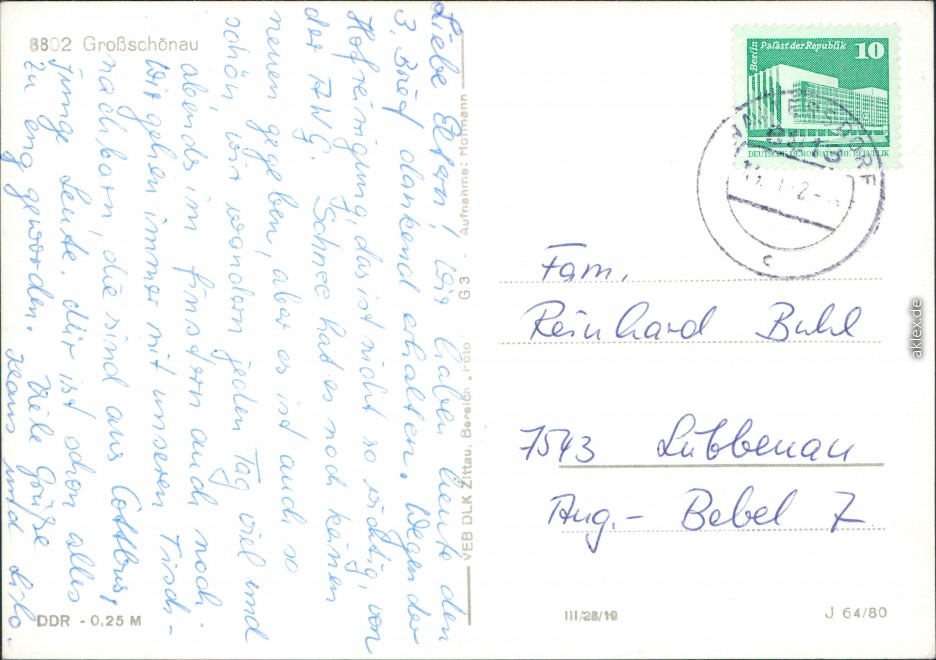 8802 Großschönau
Liebe Eltern, wir haben heute den
3. Brief dankend erhalten. Wegen der
Hofreinigung, das ist nicht so wichtig, von
der AWG. Schnee hat es noch keinen
neuen gegeben, aber es ist auch so
schön, wir wandern jeden Tag viel und
abends im finstern auch noch.
Wir gehen immer mit unseren Tisch-
nachbarn, die sind aus Cottbus,
junge Leute. Mir ist schon alles
zu eng geworden. Viele Grüße
Klaus und Lilo.
DDR - 0,25 M
VEB DLK Zittau, Bereich Foto · G 3 · Aufnahme: Hoffmann
Berlin Palast der Republik 10
DEUTSCHE DEMOKRATISCHE REPUBLIK
c
Fam.
Reinhard Buhl
7543 Lübbenau
Aug.- Bebel 7
III/28/19
J 64/80
aklex.de